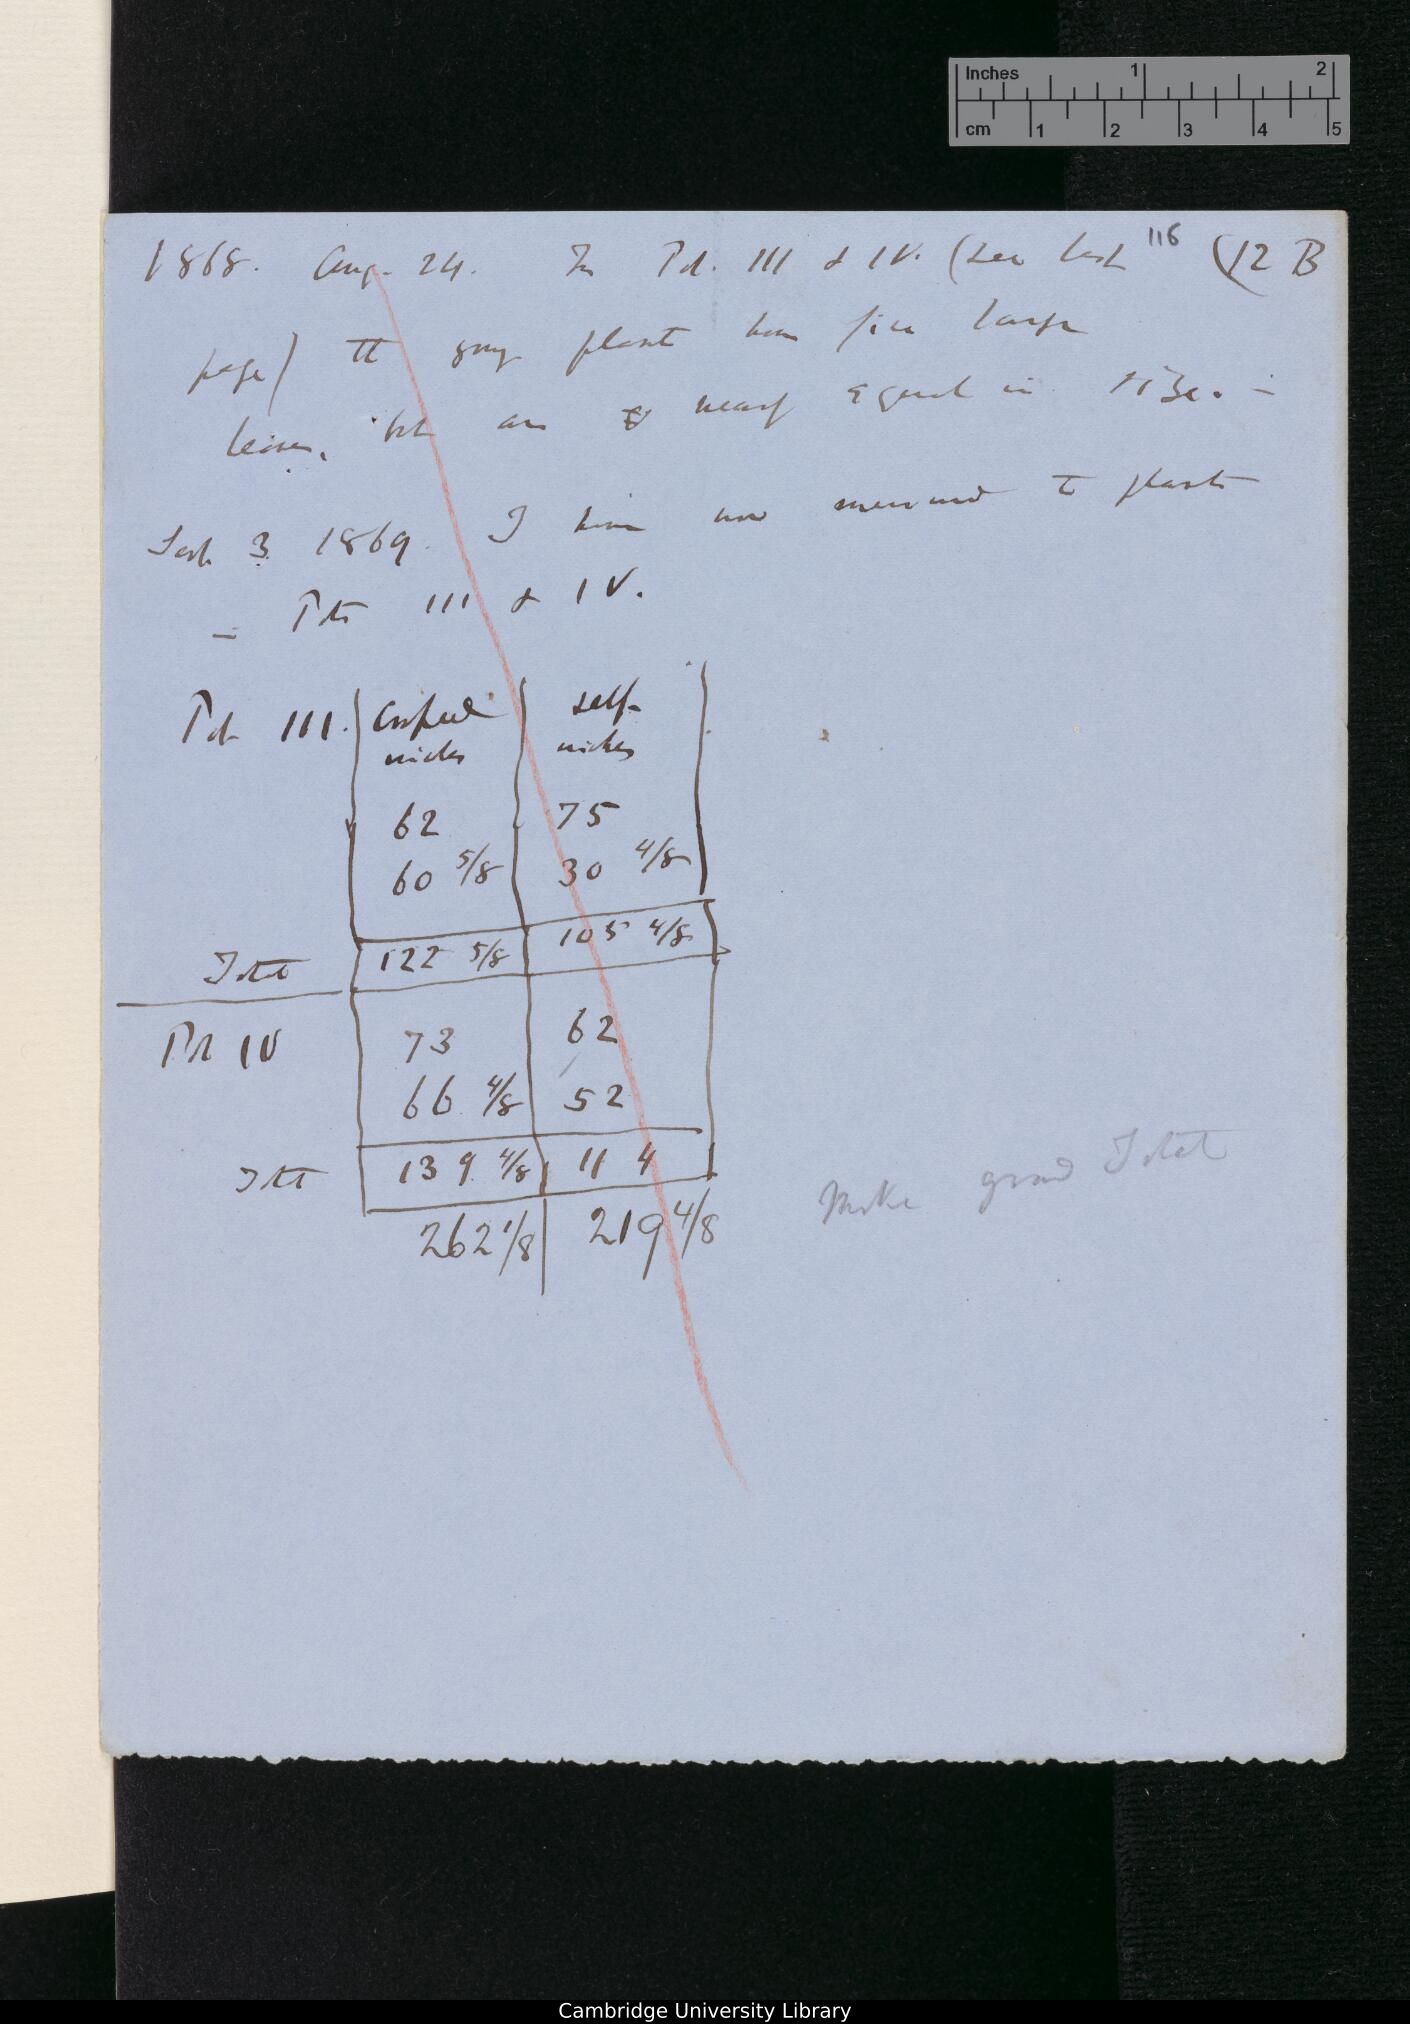 Inches 1 2
cm 1 2 3 4 5
116
1868. Aug. 24. In Pot. III & IV. (see last (12 B
page) the young plants have fine large
leaves, but are nearly equal in size. —
Sept 3. 1869. I have now measured the plants
in Pots III & IV.
Pot III. Crossed self-
inches inches
62 75
60 5/8 30 4/8
Total 122 5/8 105 4/8
Pot IV 73 62
66 4/8 52
Total 139 4/8 114
262 1/8 219 4/8
Make grand Total
Cambridge University Library